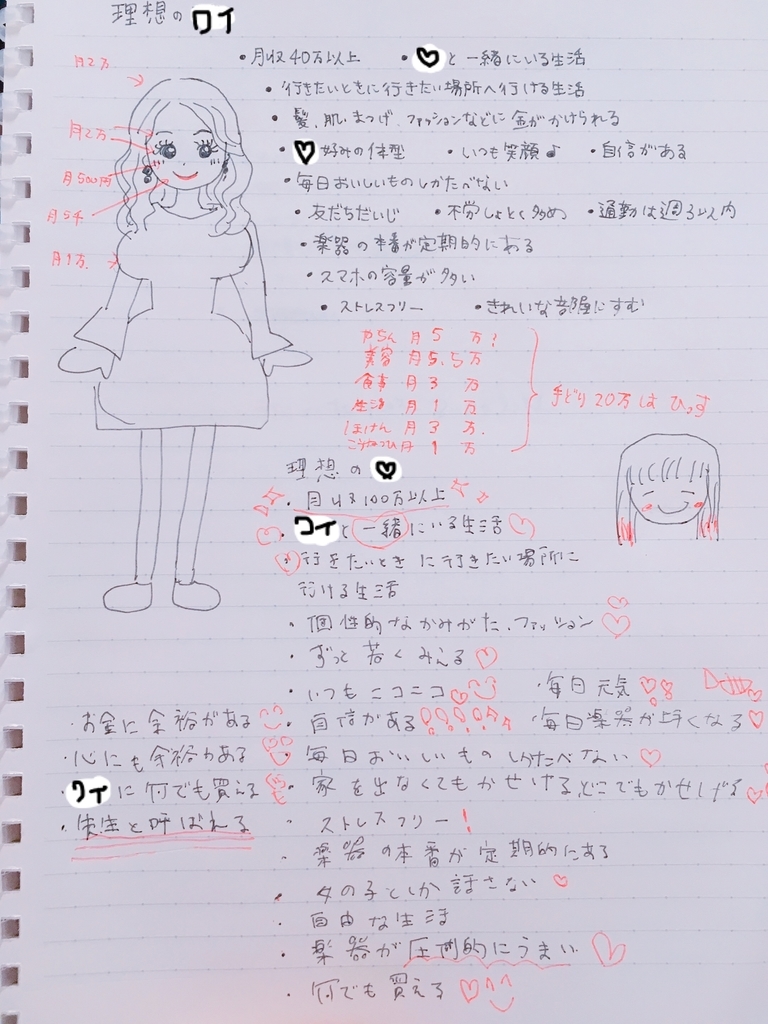 理想のワイ
・月収40万以上 ・♡と一緒にいる生活
・行きたいときに行きたい場所へ行ける生活
・髪、肌、まつげ、ファッションなどに金がかけられる
・♡好みの体型 ・いつも笑顔♪ ・自信がある
・毎日おいしいものしかたべない
・友だちだいじ ・不労しょとく多め ・通勤は週3以内
・楽器の本番が定期的にある
・スマホの容量が多い
・ストレスフリー ・きれいな部屋にすむ
月2万
月2万
月500円
月5千
月1万
やちん 月5万!
美容 月5.5万
食事 月3万
生活 月1万
ほけん 月3万.
こうねつひ 月1万
手どり20万はひっす
理想の♡
・月収100万以上
・ワイと一緒にいる生活♡
・行きたいときに行きたい場所に
行ける生活
・個性的なかみがた、ファッション
・ずっと若くみえる♡
・いつもニコニコ ・毎日元気
・自信がある ・毎日楽器が上手くなる♡
・毎日おいしいものしかたべない♡
・家を出なくてもかせげる、どこでもかせげる♡
・ストレスフリー!
・楽器の本番が定期的にある
・女の子としか話さない♡
・自由な生活
・楽器が圧倒的にうまい♡
・何でも買える♡
・お金に余裕がある
・心にも余裕がある
・ワイに何でも買える
・先生と呼ばれる